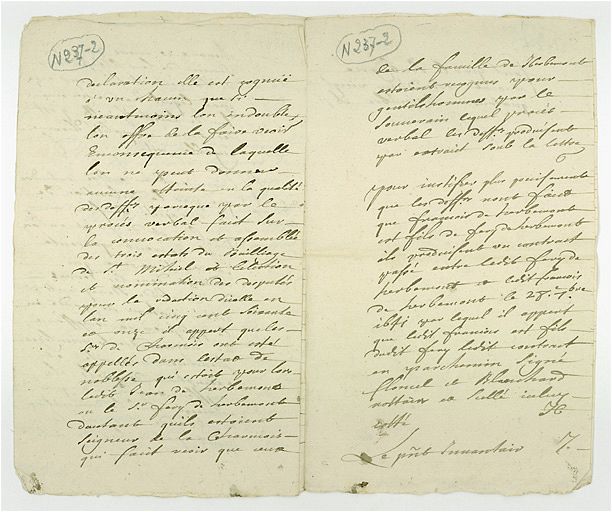 N 237-2
declaration elle est
d'un que si
neantmoins l'on en doubte
l'on offre de la faire voir
En consequence de laquelle
l'on ne peut donner
aucune atteinte a la qualité
des deffrs par le
procès verbal faict sur
la convocation et assemblée
des trois estats du Bailliage
de St Mihiel et Election
et nomination des deputés
pour la rédaction d'icelle en
l'an mil cinq cent soixante
et onze il appert que les
Srs de ont esté
appellés dans l'estat de
noblesse qui estoit pour lors
ledit Jean de herbemont
ou le Sr fery de herbemont
d'autant qu'ils estoient
seigneur de la
qui faict voir que ceux
N 237-2
de la famille de herbemont
estoient pour
gentilhommes par le
souverain lequel procès
verbal les deffrs produisent
par extrait soub la cotte
pour justifier plus
que les deffrs sont
que françois de herbemont
est fils de fery de herbemont
ils produisent un contract
passé entre ledit fery de
herbemont et ledit françois
de herbemont le 28 7bre
par lequel il appert
que ledit francois est fils
dudit fery ledit contract
en parchemin signé
et Blanchard
nottaires et scellé
cotté H
Le pnt Inventair J.